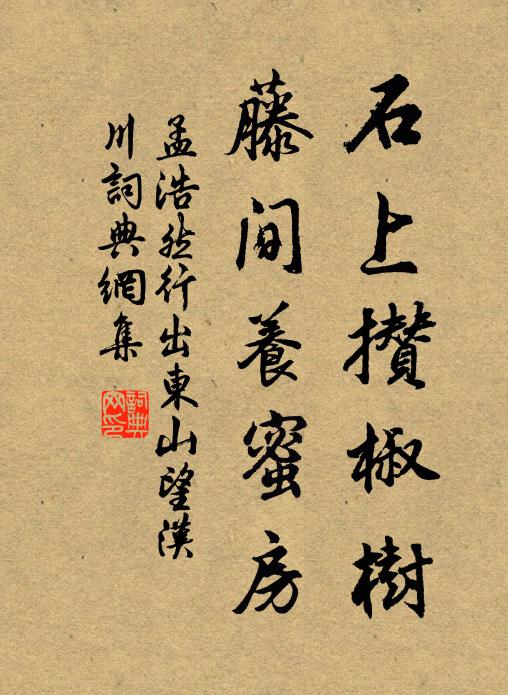 石上攅椒樹
藤間養蜜房
孟浩然行出東山望漢
川詞典網集
詞典
网印